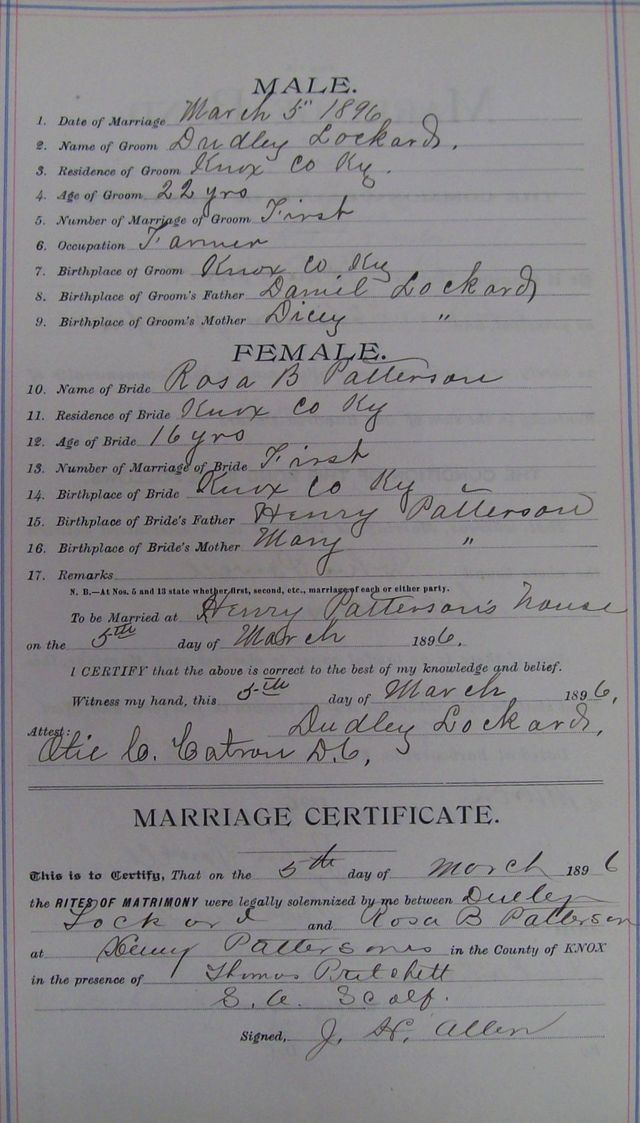 MALE.
1. Date of Marriage March 5" 1896
2. Name of Groom Dudley Lockard,
3. Residence of Groom Knox Co Ky.
4. Age of Groom 22 yrs
5. Number of Marriage of Groom First
6. Occupation Farmer
7. Birthplace of Groom Knox Co Ky
8. Birthplace of Groom's Father Daniel Lockard
9. Birthplace of Groom's Mother Dicey "
FEMALE.
10. Name of Bride Rosa B Patterson
11. Residence of Bride Knox Co Ky
12. Age of Bride 16 yrs
13. Number of Marriage of Bride First
14. Birthplace of Bride Knox Co Ky
15. Birthplace of Bride's Father Henry Patterson
16. Birthplace of Bride's Mother Mary "
17. Remarks
N. B.—At Nos. 5 and 13 state whether first, second, etc., marriage of each or either party.
To be Married at Henry Patterson's house
on the 5th day of March 1896.
I CERTIFY that the above is correct to the best of my knowledge and belief.
Witness my hand, this 5th day of March 1896,
Dudley Lockard,
Attest:
Otie C. Catron D.C,
MARRIAGE CERTIFICATE.
This is to Certify, That on the 5th day of March 1896
the RITES OF MATRIMONY were legally solemnized by me between Dudley
Lockard and Rosa B Patterson
at Henry Pattersons in the County of KNOX
in the presence of Thomas Pritchett
S. A. Scalf.
Signed, J. H. Allen